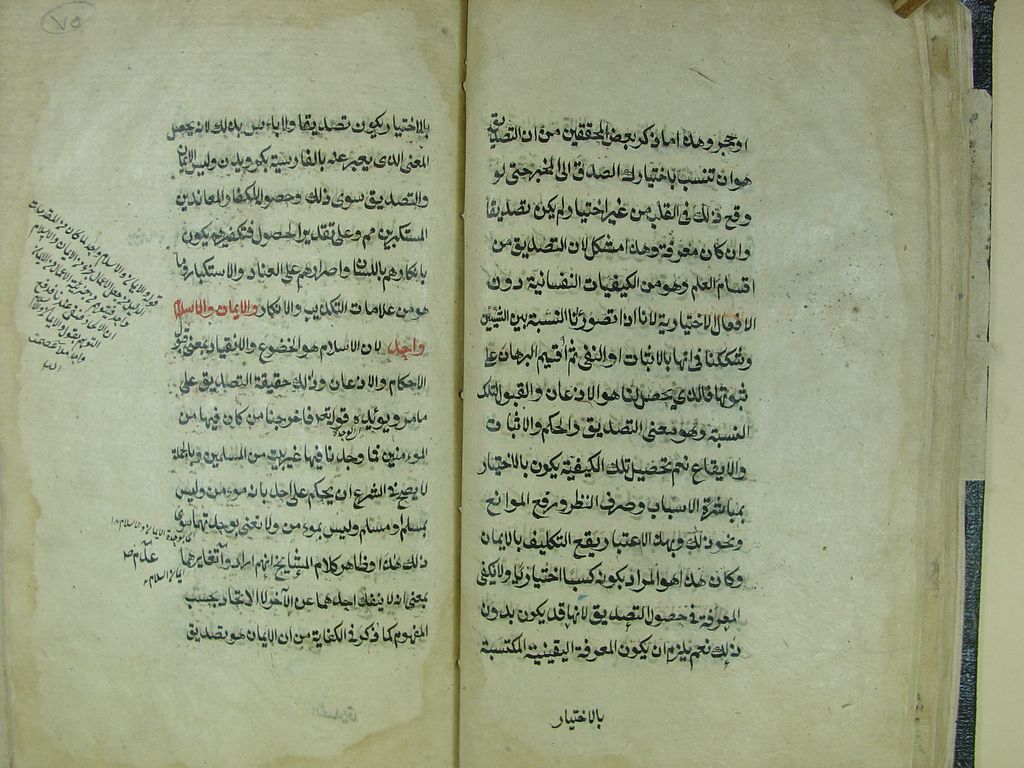 او حجر وهذا ما ذكر بعض المحققين من ان التصديق
هو ان تنسب باختيارك الصدق الى المخبر حتى لو
وقع ذلك في القلب من غير اختيار لم يكن تصديقا
وان كان معرفة وهذا مشكل لان التصديق من
اقسام العلم وهو من الكيفيات النفسانية دون
الافعال الاختيارية لانا اذا تصورنا النسبة بين الشيئين
وشككنا في انها بالاثبات او النفي ثم اقيم البرهان على
ثبوتها فالذي يحصل لنا هو الاذعان والقبول لتلك
النسبة وهو معنى التصديق والحكم والاثبات
والايقاع نعم تحصيل تلك الكيفية يكون بالاختيار
بمباشرة الاسباب وصرف النظر ورفع الموانع
ونحو ذلك وبهذا الاعتبار يقع التكليف بالايمان
وكان هذا هو المراد بكونه كسبيا اختياريا ولا يكفي
المعرفة في حصول التصديق لانها قد يكون بدون
ذلك نعم يلزم ان يكون المعرفة اليقينية المكتسبة
بالاختيار
٧٥
بالاختيار يكون تصديقا ولا باءس بذلك لانه يحصل
المعنى الذي يعبر عنه بالفارسية بكرويدن وليس الايمان
والتصديق سوى ذلك وحصوله للكفار المعاندين
المستكبرين مم وعلى تقدير الحصول فتكفيرهم يكون
بانكارهم باللسان واصرارهم على العناد والاستكبار وما
هو من علامات التكذيب والانكار والايمان والاسلام
واحد لان الاسلام هو الخضوع والانقياد بمعنى قبول
الاحكام والاذعان وذلك حقيقة التصديق على
ما مر ويؤيده قوله تعالى فاخرجنا من كان فيها من
الموءمنين فما وجدنا فيها غير بيت من المسلمين وبالجملة
لا يصح في الشرع ان يحكم على احد بانه موءمن وليس
بمسلم او مسلم وليس بموءمن ولا نعني بوحدتهما سوى
ذلك هذا وظاهر كلام المشايخ انهم ارادوا تغايرهما
بمعنى انه لا ينفك احدهما عن الآخر لا الاتحاد بحسب
المفهوم كما ذكر في الكفاية من ان الايمان هو تصديق